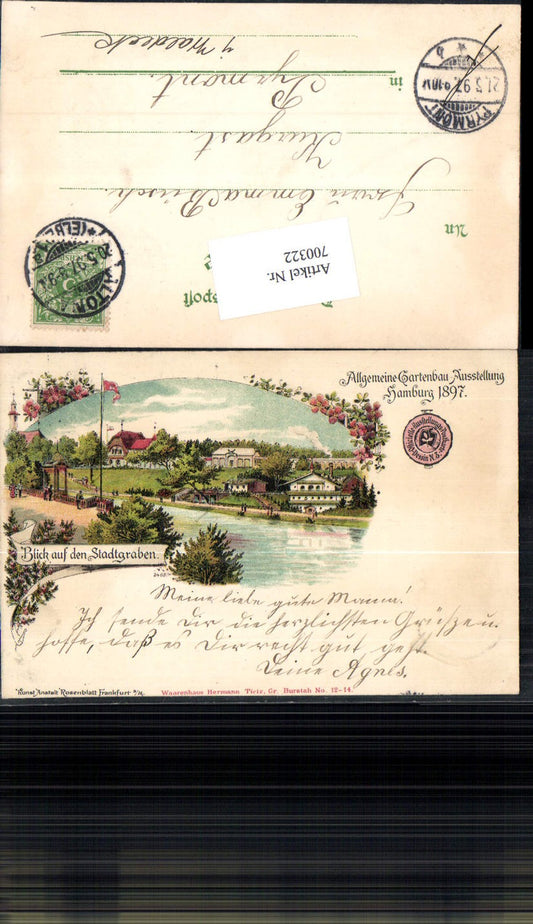 An
Frau Emma Busch.
Kurgast.
in Pyrmont.
Waldeck
PYRMONT
21.5.97
ALTONA
(ELBE)
20.5.97
Artikel Nr.
700322
Allgemeine Gartenbau-Ausstellung
Hamburg 1897.
Blick auf den Stadtgraben.
Meine liebe gute Mama!
Ich sende Dir die herzlichsten Grüße u.
hoffe, daß es Dir recht gut geht.
Deine Agnes.
Kunst Anstalt Rosenblatt Frankfurt a/M.
Waarenhaus Hermann Tietz, Gr. Burstah No. 12-14.